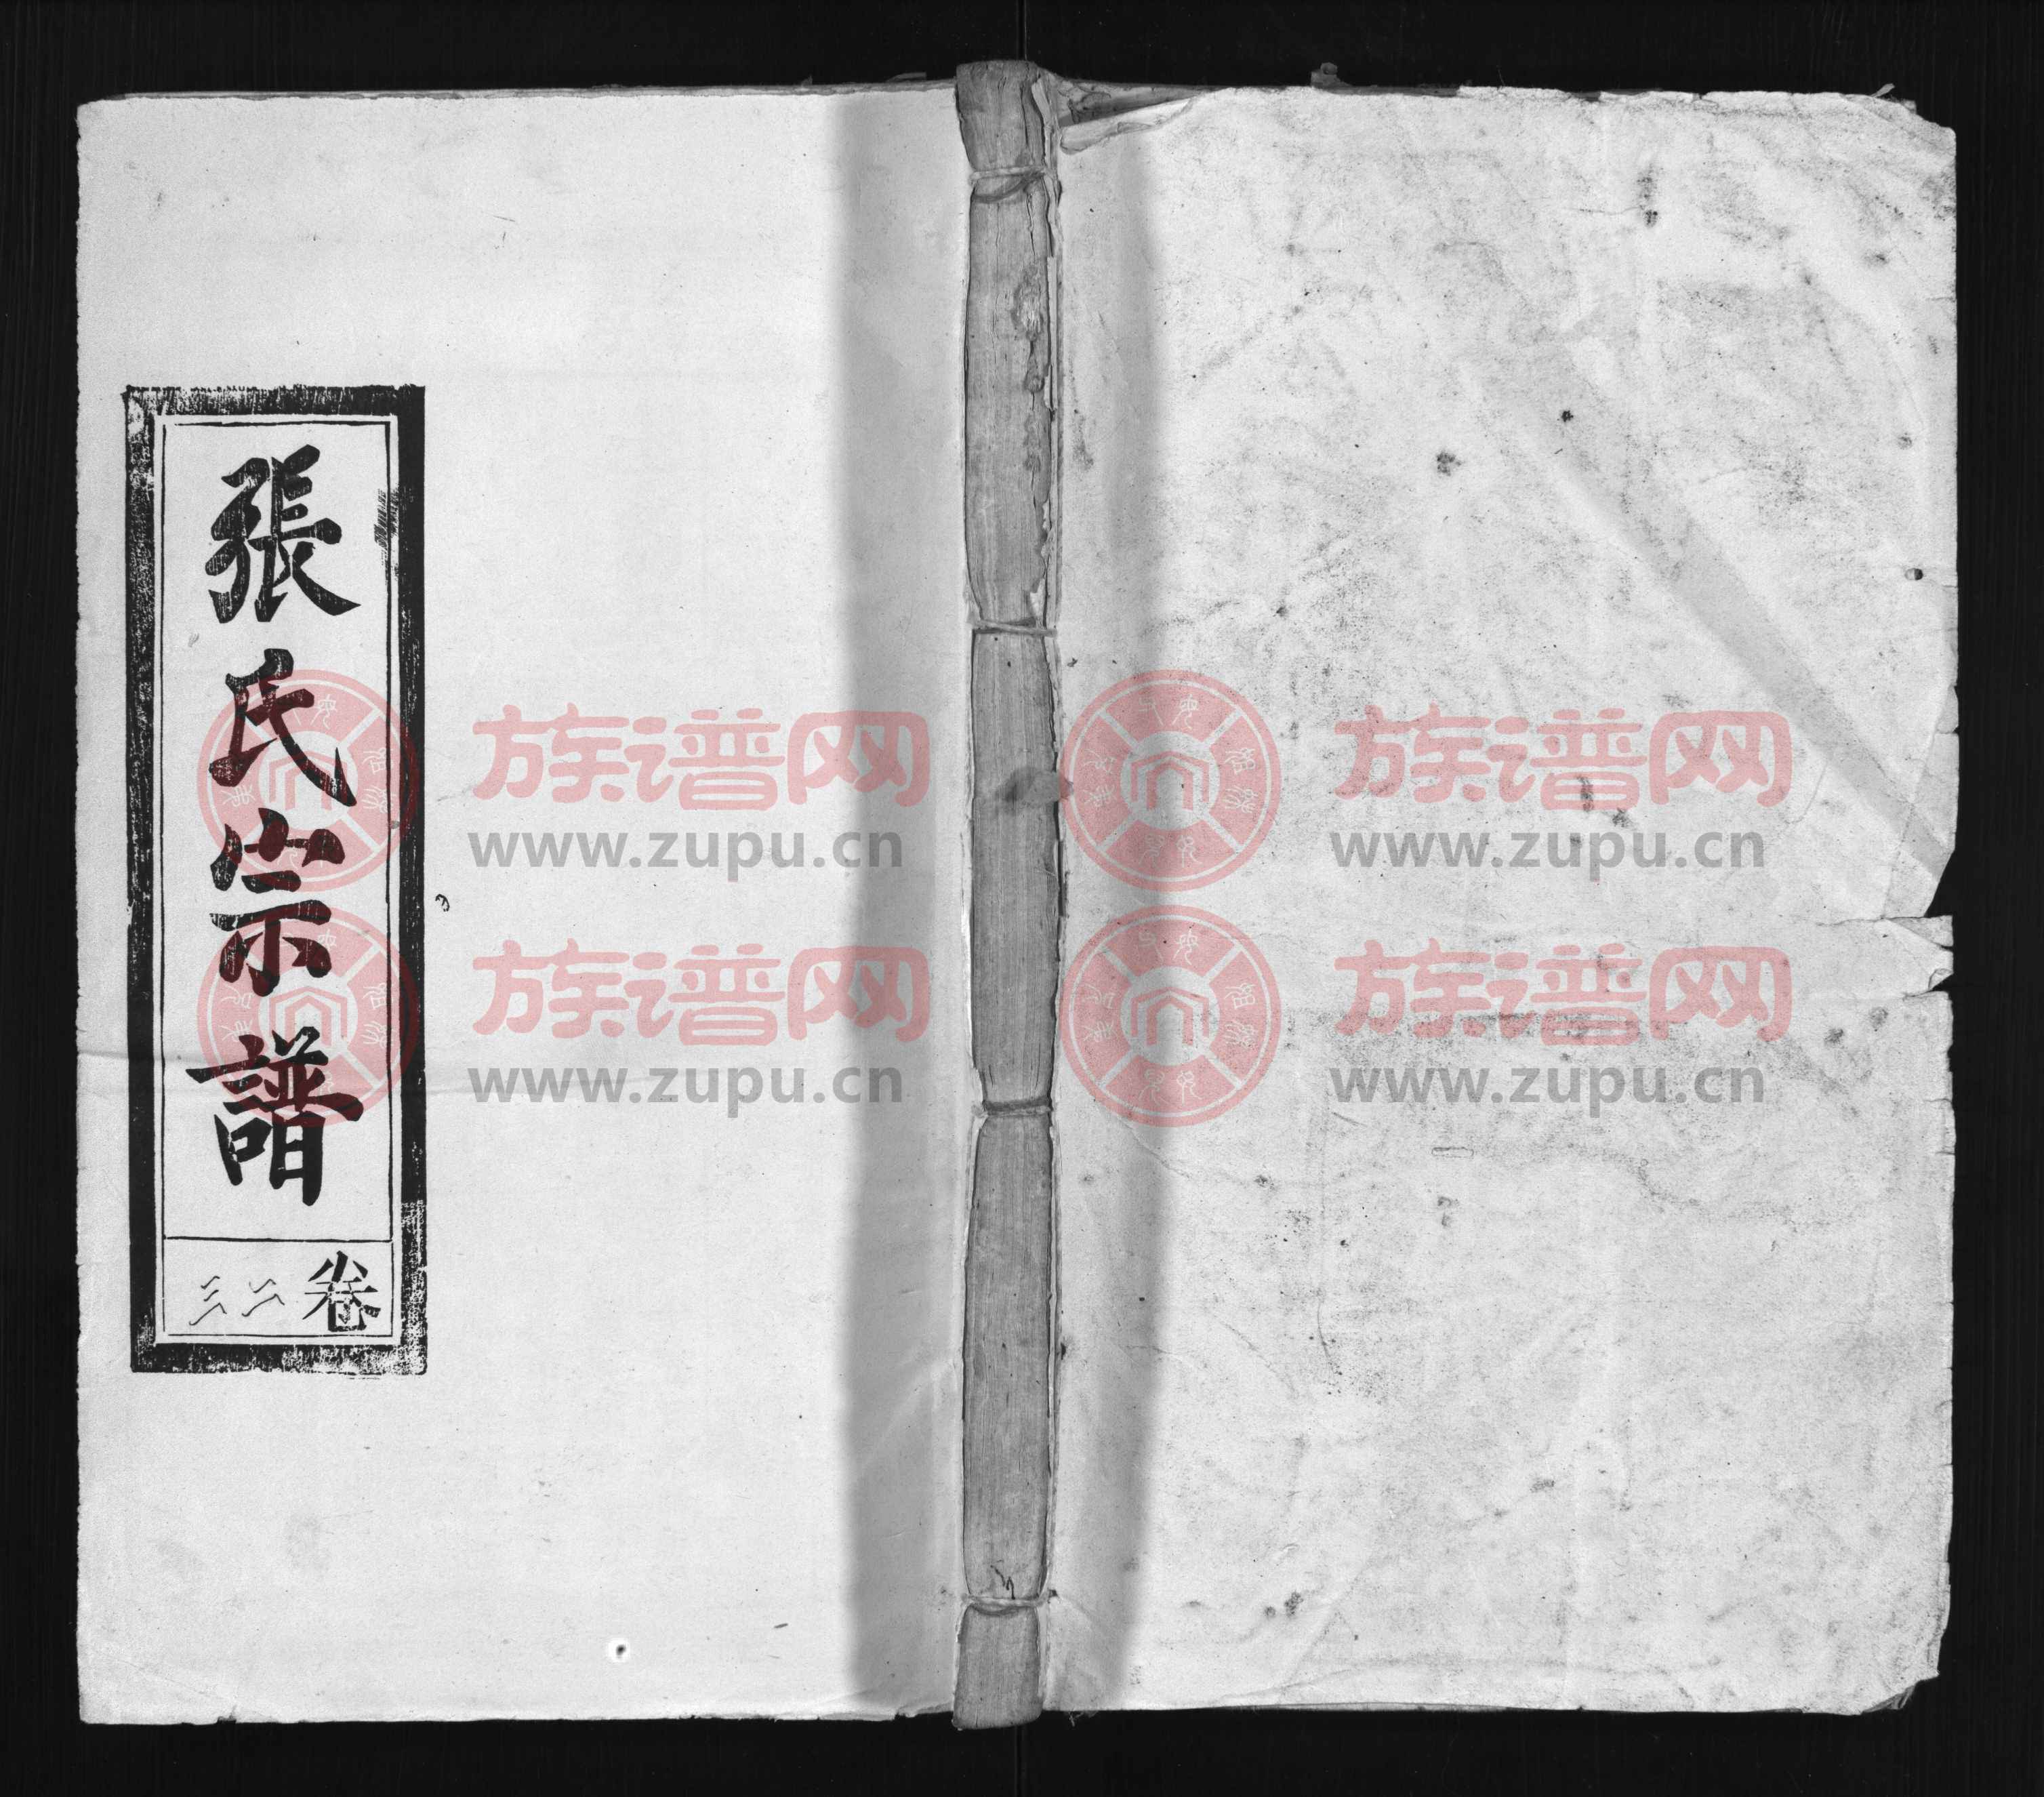 張氏宗譜
卷二三
族谱网
www.zupu.cn
族谱网
www.zupu.cn
族谱网
www.zupu.cn
族谱网
www.zupu.cn